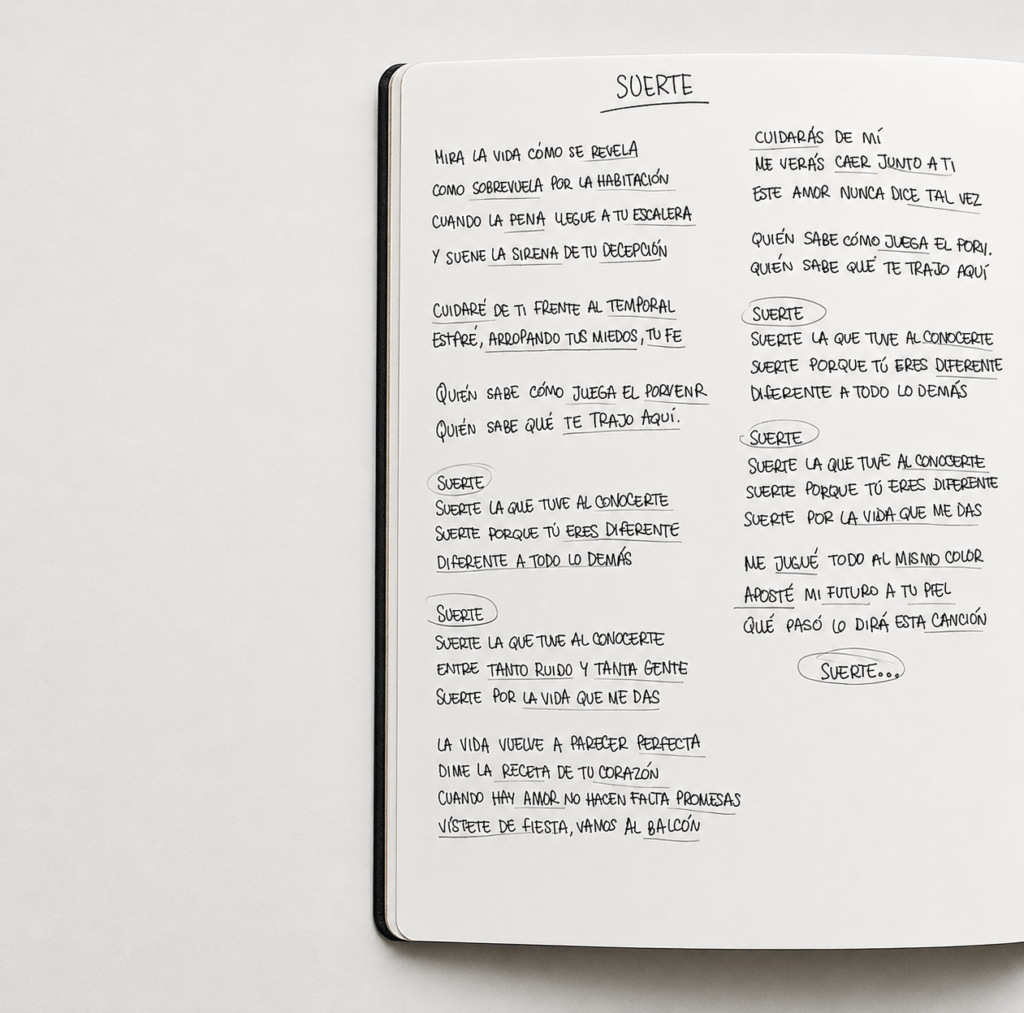 SUERTE
MIRA LA VIDA CÓMO SE REVELA
COMO SOBREVUELA POR LA HABITACIÓN
CUANDO LA PENA LLEGUE A TU ESCALERA
Y SUENE LA SIRENA DE TU DECEPCIÓN
CUIDARÉ DE TI FRENTE AL TEMPORAL
ESTARÉ, ARROPANDO TUS MIEDOS, TU FE
QUIÉN SABE CÓMO JUEGA EL PORVENR
QUIÉN SABE QUÉ TE TRAJO AQUÍ.
SUERTE
SUERTE LA QUE TUVE AL CONOCERTE
SUERTE PORQUE TÚ ERES DIFERENTE
DIFERENTE A TODO LO DEMÁS
SUERTE
SUERTE LA QUE TUVE AL CONOCERTE
ENTRE TANTO RUIDO Y TANTA GENTE
SUERTE POR LA VIDA QUE ME DAS
LA VIDA VUELVE A PARECER PERFECTA
DIME LA RECETA DE TU CORAZÓN
CUANDO HAY AMOR NO HACEN FALTA PROMESAS
VÍSTETE DE FIESTA, VAMOS AL BALCÓN
CUIDARÁS DE MÍ
ME VERÁS CAER JUNTO A TI
ESTE AMOR NUNCA DICE TAL VEZ
QUIÉN SABE CÓMO JUEGA EL PORV.
QUIÉN SABE QUÉ TE TRAJO AQUÍ
SUERTE
SUERTE LA QUE TUVE AL CONOCERTE
SUERTE PORQUE TÚ ERES DIFERENTE
DIFERENTE A TODO LO DEMÁS
SUERTE
SUERTE LA QUE TUVE AL CONOCERTE
SUERTE PORQUE TÚ ERES DIFERENTE
SUERTE POR LA VIDA QUE ME DAS
ME JUGUÉ TODO AL MISMO COLOR
APOSTÉ MI FUTURO A TU PIEL
QUÉ PASÓ LO DIRÁ ESTA CANCIÓN
SUERTE...